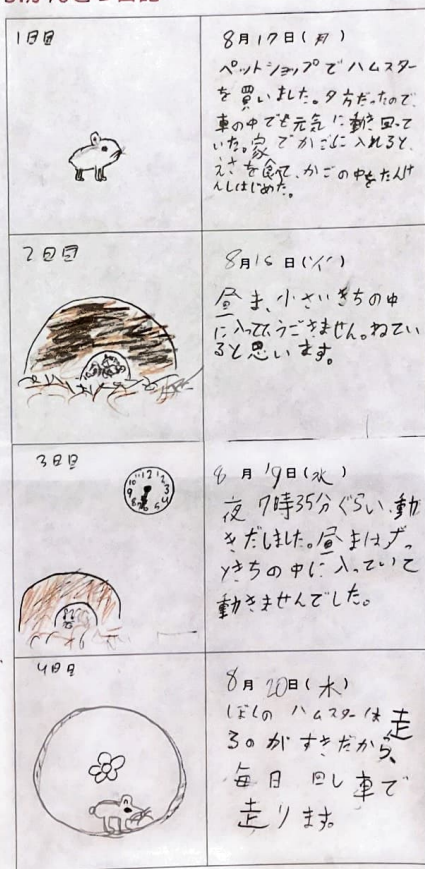 1日目
8月17日(月)
ペットショップでハムスター
を買いました。夕方だったので、
車の中でも元気に動き回って
いた。家でかごに入れると、
えさを食べて、かごの中をたんけ
んしはじめた。
2日目
8月18日(火)
昼ま、小さいきちの中
に入ってうごきません。ねてい
ると思います。
3日目
12 1 2 3 4 5 6 7 8 9 10 11
8月19日(水)
夜7時35分ぐらい、動
きだしました。昼まはずっ
ときちの中に入っていて
動きませんでした。
4日目
8月20日(木)
ぼくの ハムスターは 走
るのがすきだから、
毎日 回し車で
走ります。